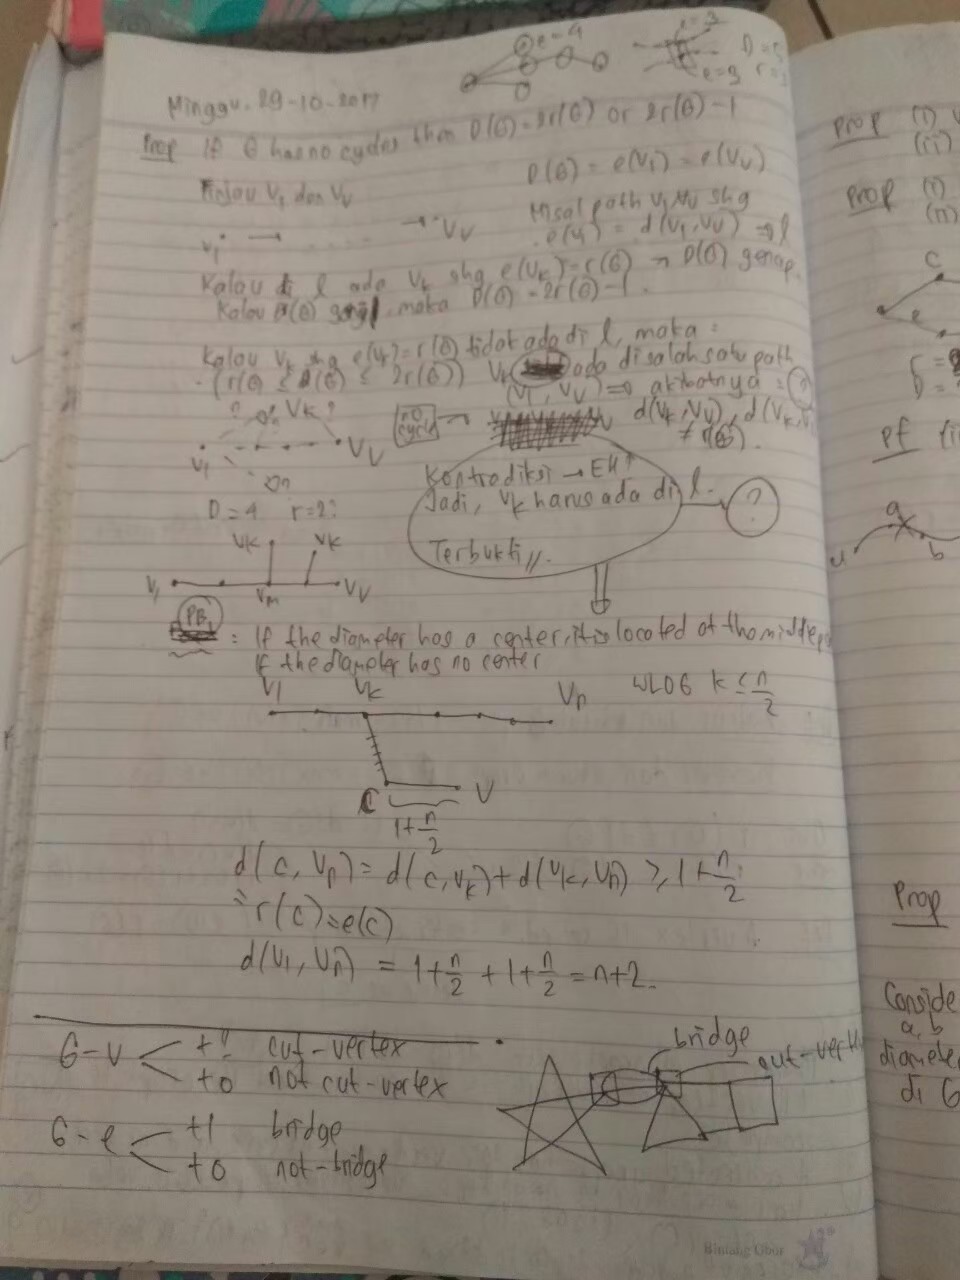 e=4
e=3
D=5
e=3 r=3
Minggu, 29-10-2017
Prop If G has no cycles then D(G)=2r(G) or 2r(G)-1
Tinjau V1 dan Vv
D(G) = e(V1) = e(Vv)
Misal path V1 Vv shg
e(V1) = d(V1, Vv) → l
V1 → . . . → Vv
Kalau di l ada Vk shg e(Vk)=r(G) → D(G) genap.
Kalau D(G) maka D(G)=2r(G)-1.
Kalau Vk shg e(Vk)=r(G) tidak ada di l, maka:
(r(G) ≤ D(G) ≤ 2r(G)) Vk ada di salah satu path
(V1, Vv) ⇒ akibatnya: ?
? Vk?
no cycle →
d(Vk, Vv), d(Vk, V1
≠ r(G).
V1 Vv
D=4 r=2?
Kontradiksi →
Jadi, Vk harus ada di l. ?
Terbukti //.
Vk Vk
V1 Vm Vv
PB1
: If the diameter has a center, it is located at the middle
If the diameter has no center
V1 Vk Vn WLOG k ≤ n/2
C V
1+n/2
d(c, Vn) = d(c, Vk) + d(Vk, Vn) ≥ 1+n/2
r(c) = e(c)
d(V1, Vn) = 1+n/2 + 1+n/2 = n+2.
G-v < +? cut-vertex
+0 not cut-vertex
G-e < +1 bridge
+0 not-bridge
bridge
cut-vert
Bintang Obor
Prop (i)
(ii)
Prop (i)
(ii)
C
e
δ =
pf (i
a
u b
Prop
Conside
a, b
diamete
di G